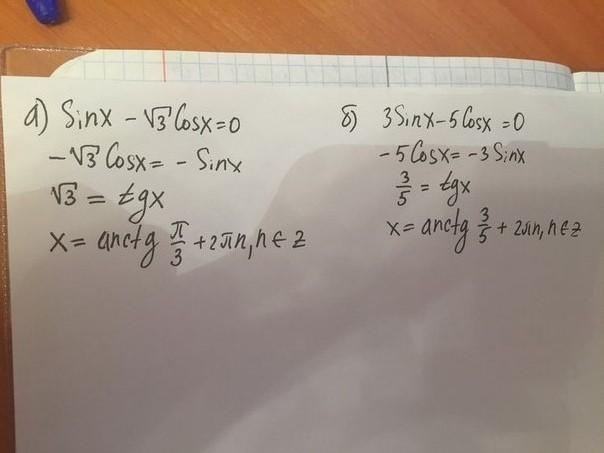 а) Sinx - √3 Cosx = 0
-√3 Cosx = - Sinx
√3 = tgx
x = arctg π/3 + 2πn, n ∈ z
б) 3Sinx - 5Cosx = 0
-5Cosx = -3Sinx
3/5 = tgx
x = arctg 3/5 + 2πn, n ∈ z